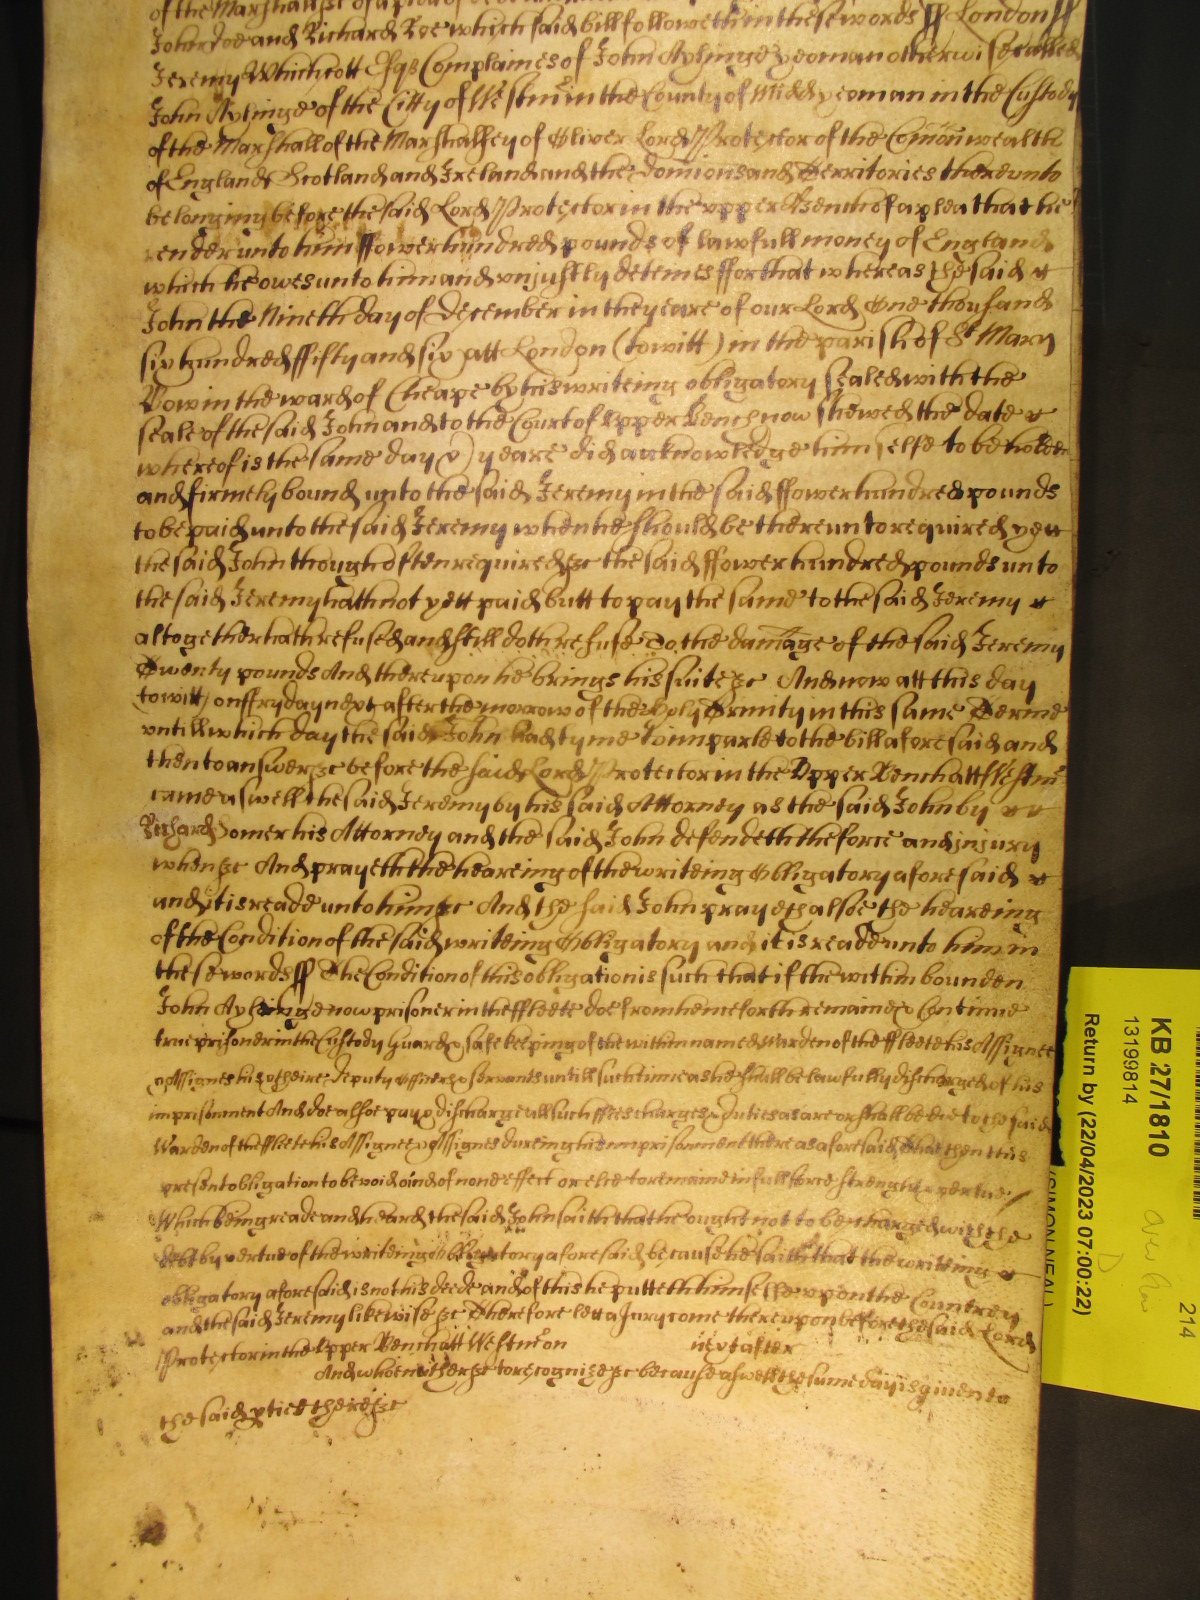 of the Marshall &c of a plea of
John Doe and Richard Roe which said bill followeth in these words ss London ss
Jeremy Whichcott Esqr Complaines of John Aylinge yeoman otherwise called
John Aylinge of the Citty of Westmr in the County of Midd yeoman in the Custody
of the Marshall of the Marshallsey of Oliver Lord Protector of the Comonwealth
of England Scotland and Ireland and the Dominions and Territories thereunto
belonging before the said Lord Protector in the upper Bench of a plea that he
render unto him ffower hundred pounds of lawfull money of England
which he owes unto him and unjustly deteines ffor that whereas the said
John the Nineth day of December in the yeare of our Lord One thousand
six hundred ffifty and six att London (to witt) in the parish of St Mary
Bow in the ward of Cheape by his writeing obligatory sealed with the
seale of the said John and to the Court of Upper Bench now shewed the date
whereof is the same day & yeare did acknowledge himselfe to be holden
and firmely bound unto the said Jeremy in the said ffower hundred pounds
to be paid unto the said Jeremy when he should be thereunto required yett
the said John though often required &c the said ffower hundred pounds unto
the said Jeremy hath not yett paid butt to pay the same to the said Jeremy
altogether hath refused and still doth refuse To the damage of the said Jeremy
Twenty pounds And thereupon he brings his suite &c And now att this day
to witt) on ffryday next after the morrow of the Holy Trinity in this same Terme
untill which day the said John had tyme to imparle to the bill aforesaid and
then to answer &c before the said Lord Protector in the Upper Bench att Westmr
came aswell the said Jeremy by his said Attorney as the said John by
Richard Somer his Attorney and the said John defendeth the force and injury
when &c And prayeth the heareing of the writeing Obligatory aforesaid
and it is reade unto him &c And the said John prayeth alsoe the heareing
of the Condition of the said writeing Obligatory and it is reade unto him in
these words ss The Condition of this obligation is such that if the within bounden
John Aylinge now prisoner in the ffleete doe from henceforth remaine & Continue
true prisoner in the Custody guard & safe keeping of the within named Warden of the ffleete his Assignee
& Assignes his & theire deputy officers & servants untill such time as he shall be lawfully discharged of his
imprisonment And doe alsoe pay & discharge all such ffees charges & duties as are or shall be due to the said
Warden of the ffleete his Assignee & Assignes dureing his imprisonment there as aforesaid That then this
present obligation to be void and of none effect or else to remaine in full force strength & vertue
Which being reade and heard the said John saith that he ought not to be charged with the
debt by vertue of the writeing Obligatory aforesaid because he saith that the writeing
obligatory aforesaid is not his deede and of this he putteth himselfe upon the Countrey
and the said Jeremy likewise &c Therefore lett a Jury come thereupon before the said Lord
Protector in the Upper Bench att Westmr on next after
And who neither &c to recognize &c because aswell the same day is given to
the said pties there &c
KB 27/1810
13199814
Return by (22/04/2023 07:00:22)
(SIMON NEAL)
214
D